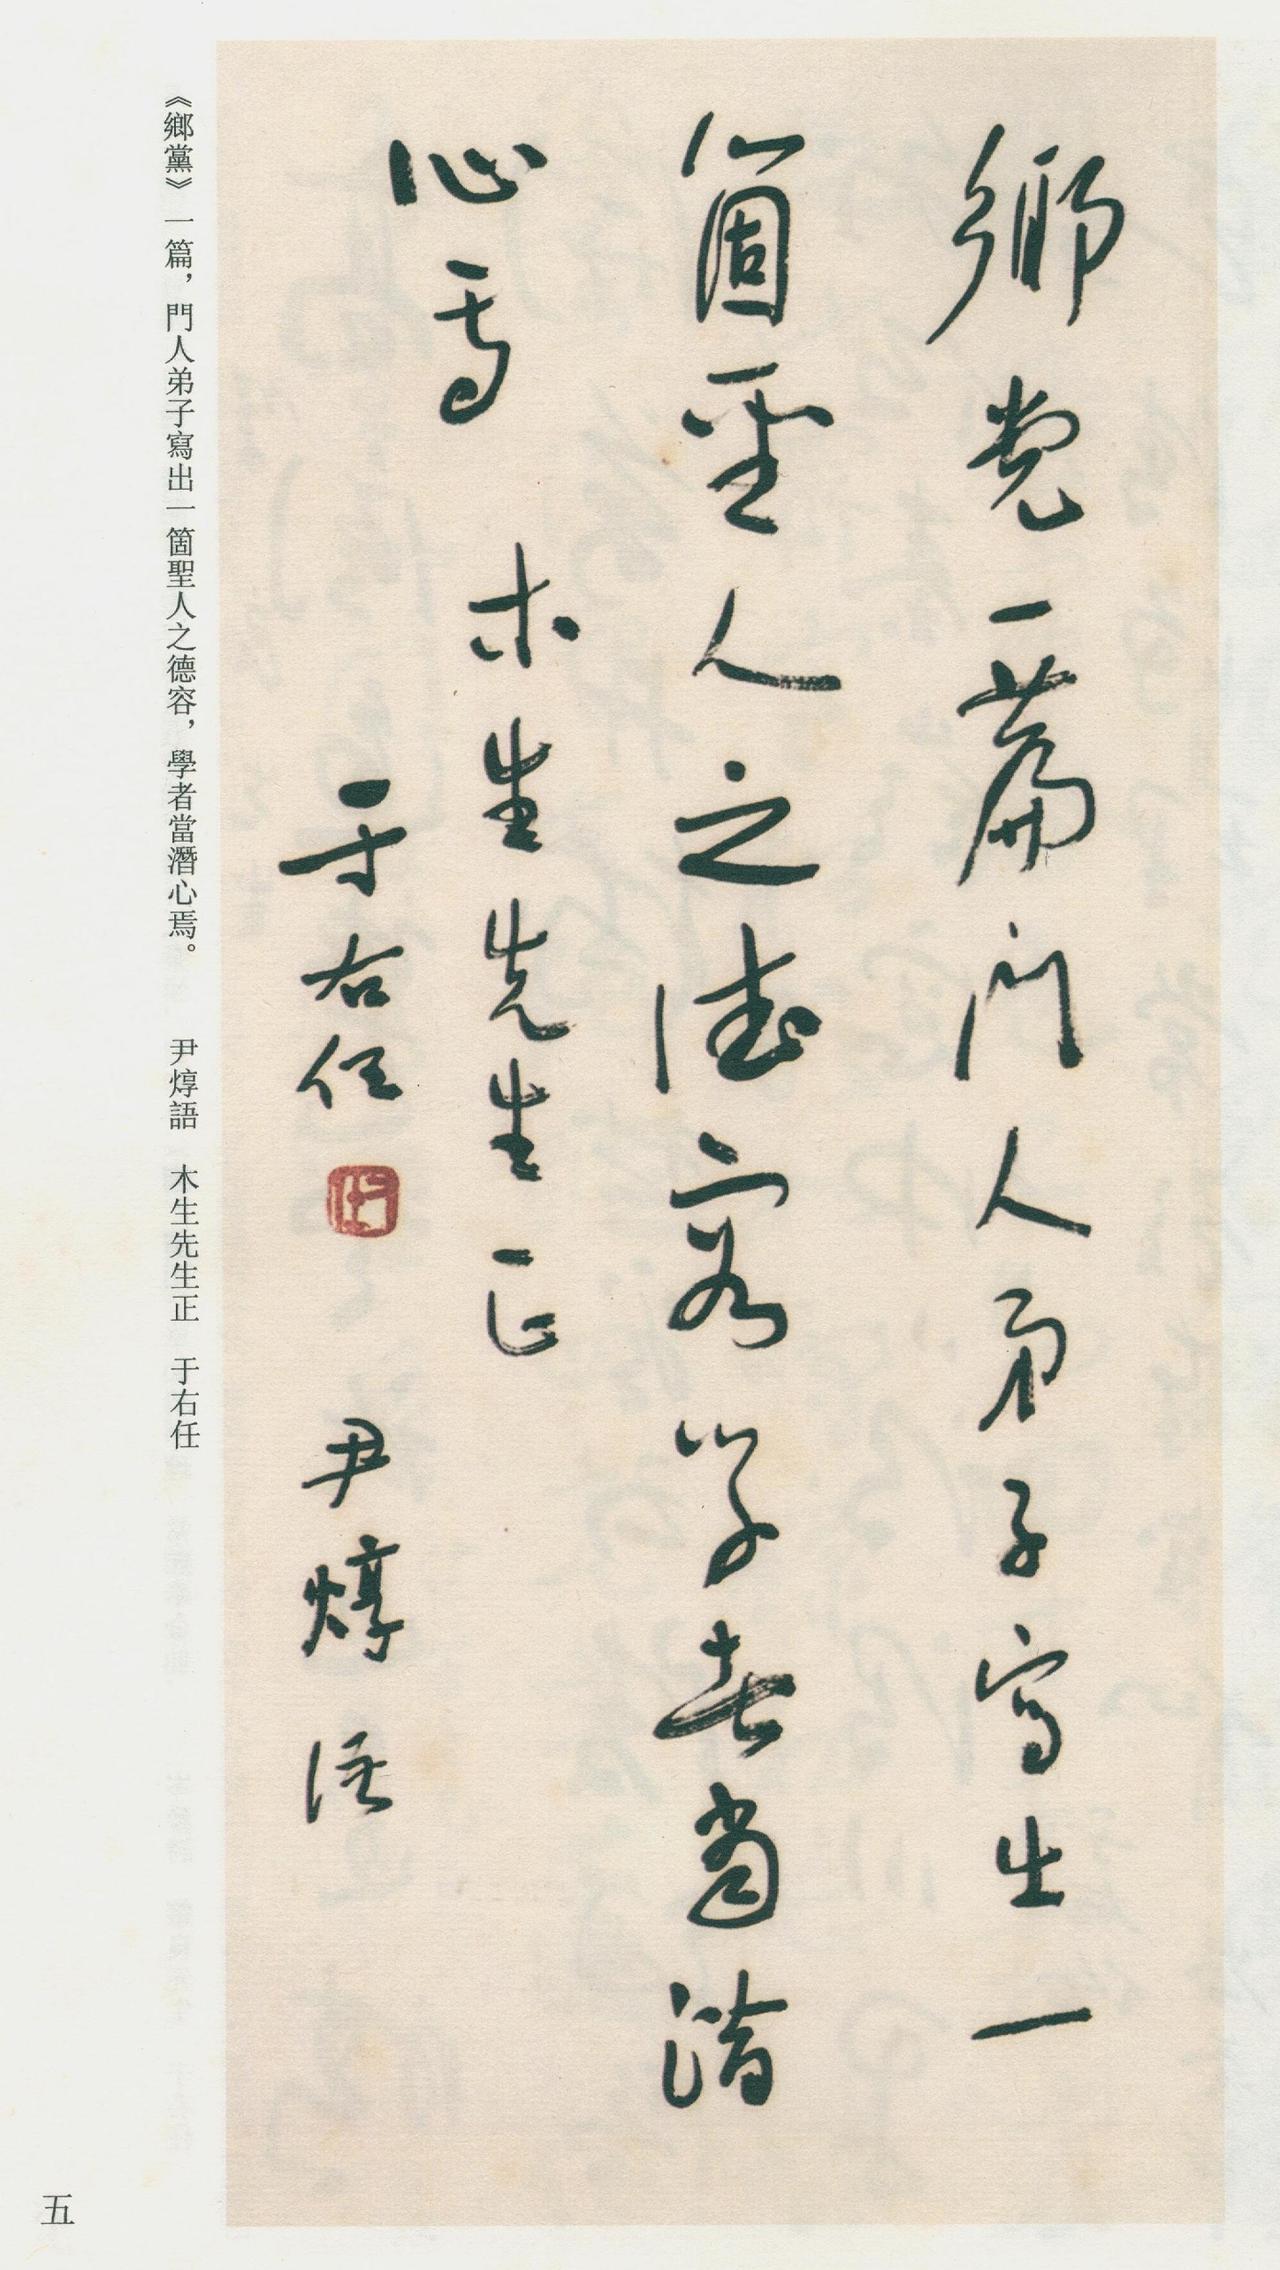 鄉党一篇门人弟子寫出一
箇聖人之德容学者當潛
心焉
木生先生正
尹焞语
于右任
《鄉黨》一篇，門人弟子寫出一箇聖人之德容，學者當潛心焉。　尹焞語　木生先生正　于右任
五